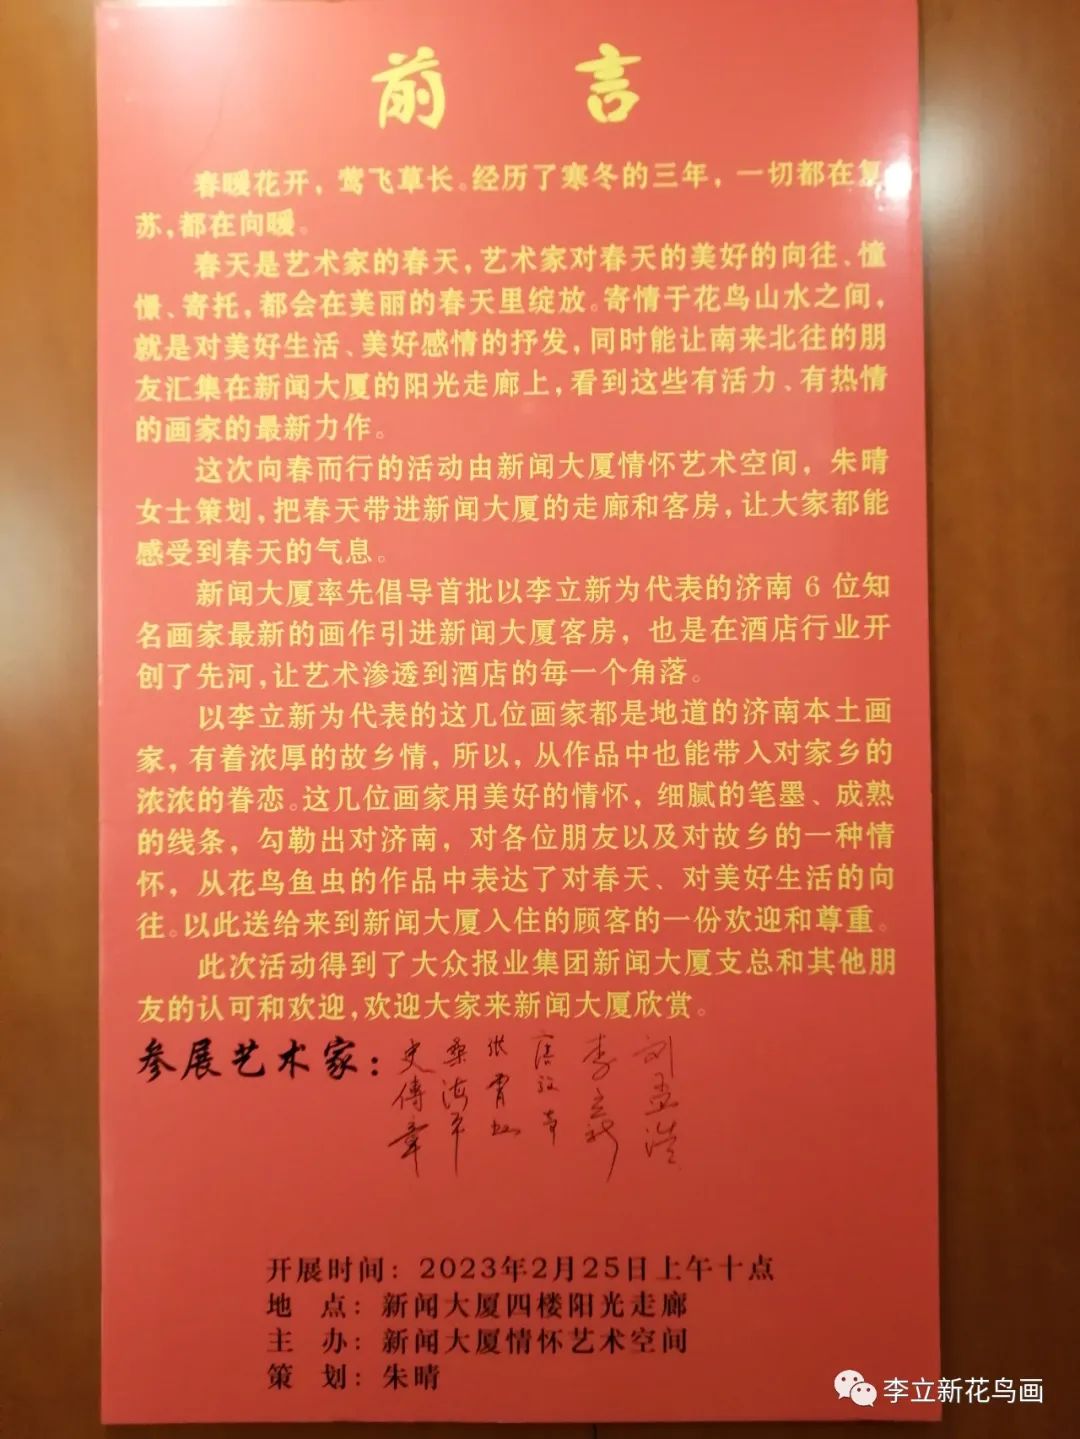 前言
春暖花开，莺飞草长。经历了寒冬的三年，一切都在复
苏，都在向暖。
春天是艺术家的春天，艺术家对春天的美好的向往、憧
憬、寄托，都会在美丽的春天里绽放。寄情于花鸟山水之间，
就是对美好生活、美好感情的抒发，同时能让南来北往的朋
友汇集在新闻大厦的阳光走廊上，看到这些有活力、有热情
的画家的最新力作。
这次向春而行的活动由新闻大厦情怀艺术空间，朱晴
女士策划，把春天带进新闻大厦的走廊和客房，让大家都能
感受到春天的气息。
新闻大厦率先倡导首批以李立新为代表的济南6位知
名画家最新的画作引进新闻大厦客房，也是在酒店行业开
创了先河，让艺术渗透到酒店的每一个角落。
以李立新为代表的这几位画家都是地道的济南本土画
家，有着浓厚的故乡情，所以，从作品中也能带入对家乡的
浓浓的眷恋。这几位画家用美好的情怀，细腻的笔墨、成熟
的线条，勾勒出对济南，对各位朋友以及对故乡的一种情
怀，从花鸟鱼虫的作品中表达了对春天、对美好生活的向
往。以此送给来到新闻大厦入住的顾客的一份欢迎和尊重。
此次活动得到了大众报业集团新闻大厦支总和其他朋
友的认可和欢迎，欢迎大家来新闻大厦欣赏。
参展艺术家：
史傳章
桑海平
张霄虹
李立新
开展时间：2023年2月25日上午十点
地 点：新闻大厦四楼阳光走廊
主 办：新闻大厦情怀艺术空间
策 划：朱晴
李立新花鸟画